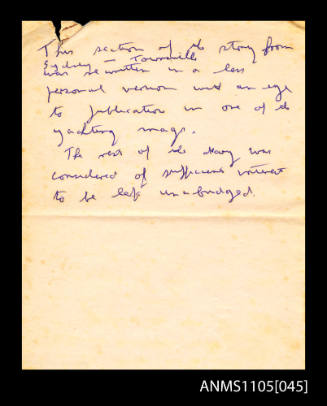 This section of the story from
Sydney – Townsville
was rewritten in a less
personal version with an eye
to publication in one of the
yachting mags.
The rest of the story was
considered of sufficient interest
to be left unabridged.
ANMS1105[045]